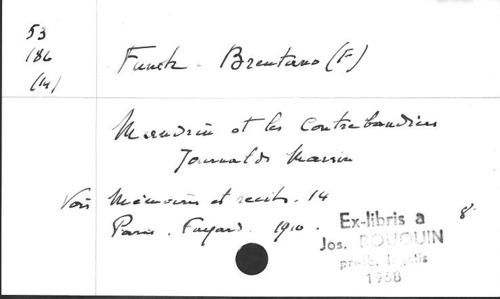 53
186
(14)
Funck - Brentano (F)
Mandrin et les contrebandiers
Journal de Marsin
Voir Mémoires et récits. 14
Paris. Fayard. 1910. 8°
Ex-libris a
Jos. ROUQUIN
1958